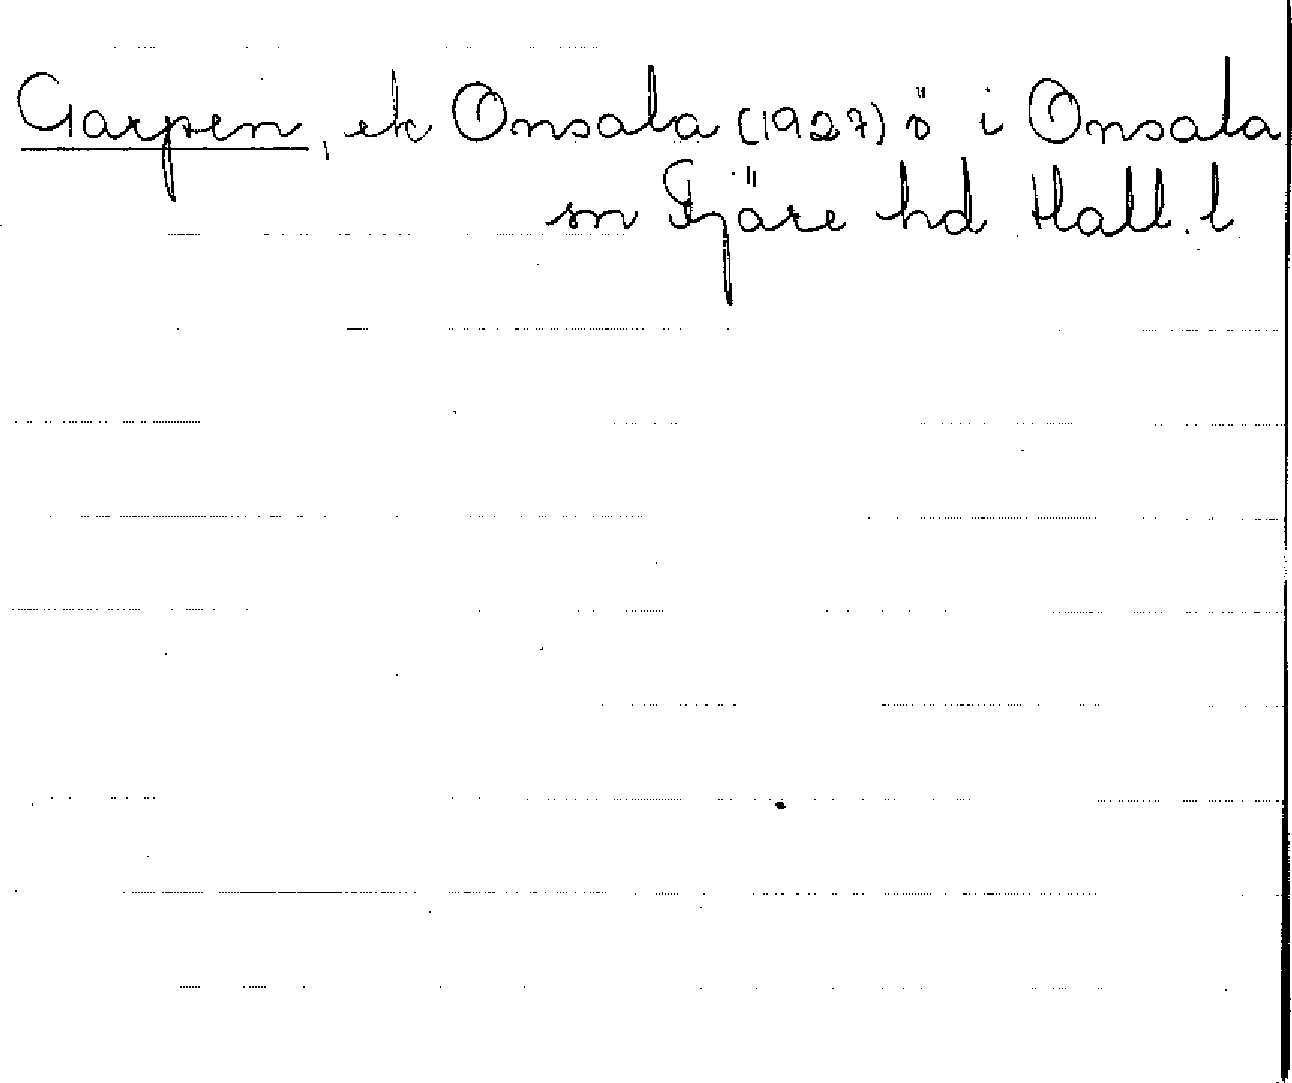 Garpen, ek Onsala (1927) ö i Onsala
sn Fjäre hd Hall. l